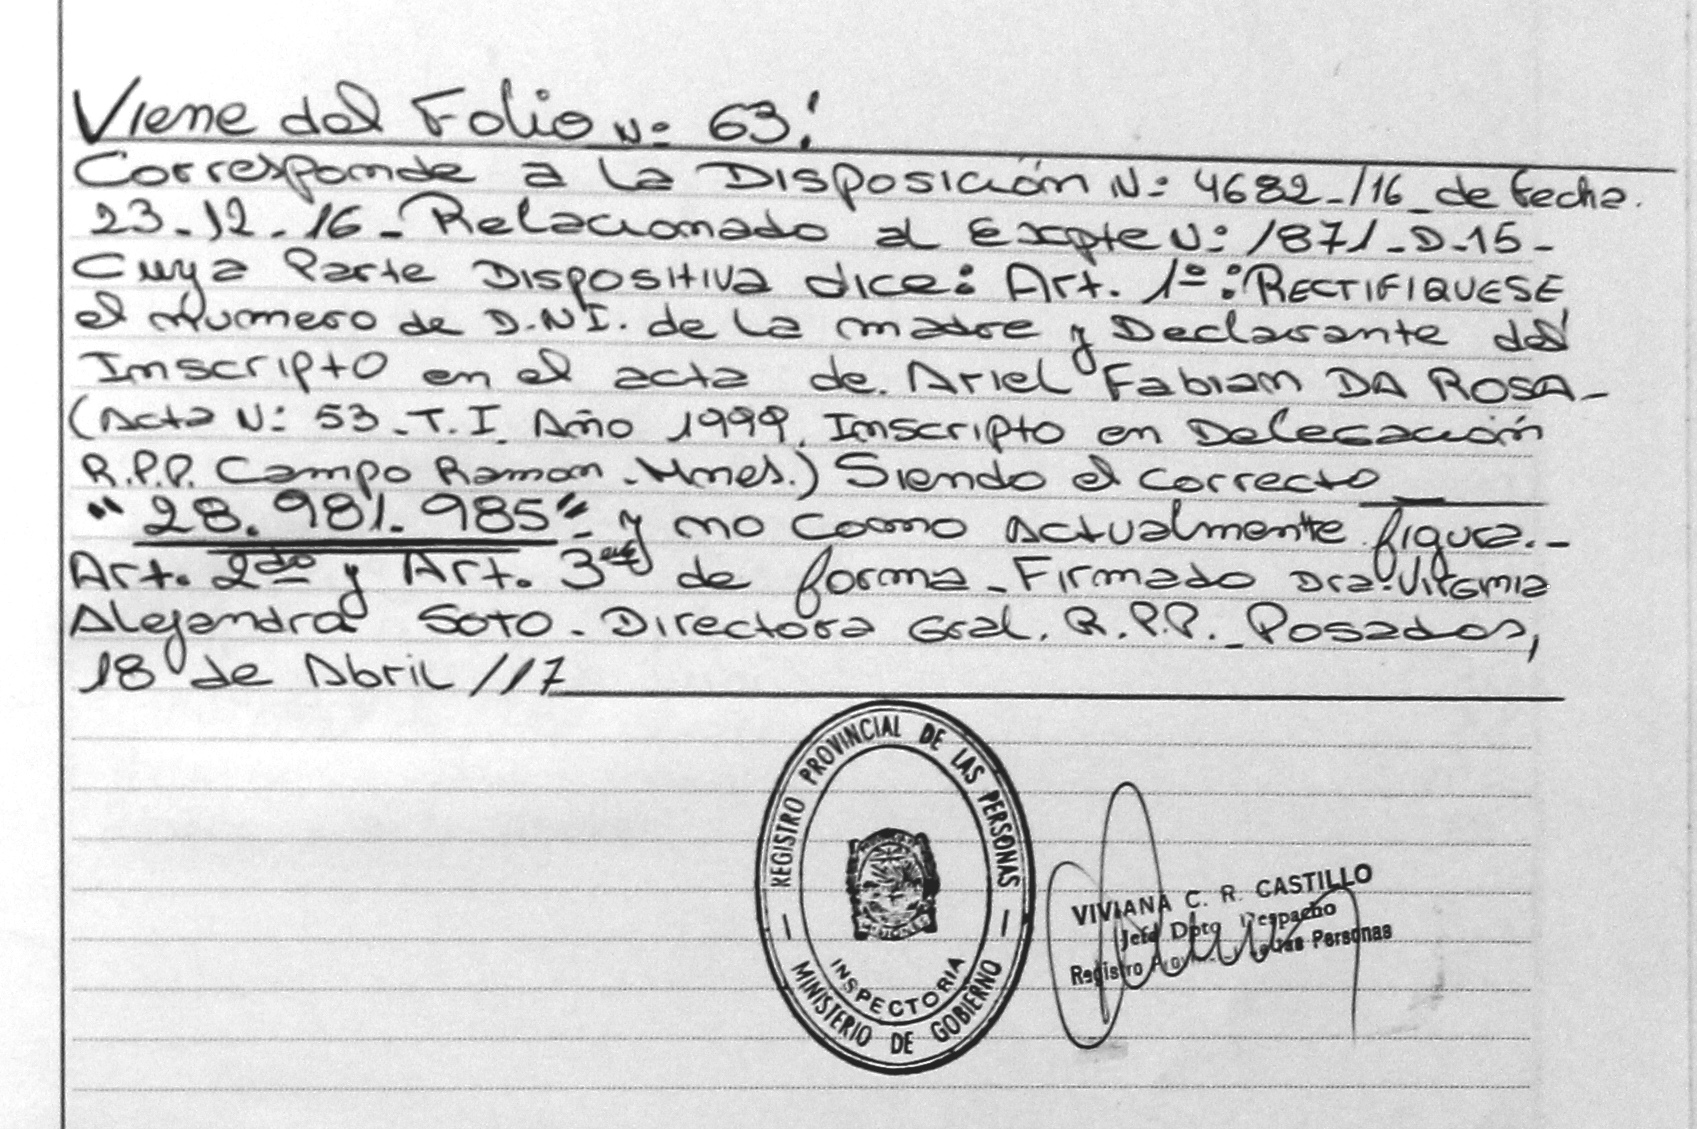 Viene del Folio Nº 63!
Corresponde a la Disposición Nº 4682-/16 de fecha.
23-12-16- Relacionado al Expte Nº 1871-D-15-
Cuya Parte Dispositiva dice: Art. 1º: RECTIFIQUESE
el Numero de D.N.I. de la madre y Declarante del
Inscripto en el acta de. Ariel Fabian DA ROSA-
(Acta Nº 53-T.I. Año 1999. Inscripto en Delegación
R.P.P. Campo Ramon-Mnes.) Siendo el correcto
"28.981.985" y no como actualmente figura.-
Art. 2do y Art. 3ero de forma-Firmado Dra. Virginia
Alejandra Soto. Directora Gral. R.P.P.- Posadas,
18 de Abril /17
REGISTRO PROVINCIAL DE LAS PERSONAS
INSPECTORIA
MINISTERIO DE GOBIERNO
VIVIANA C. R. CASTILLO
Jefa Dpto Despacho
Registro Provincial de las Personas